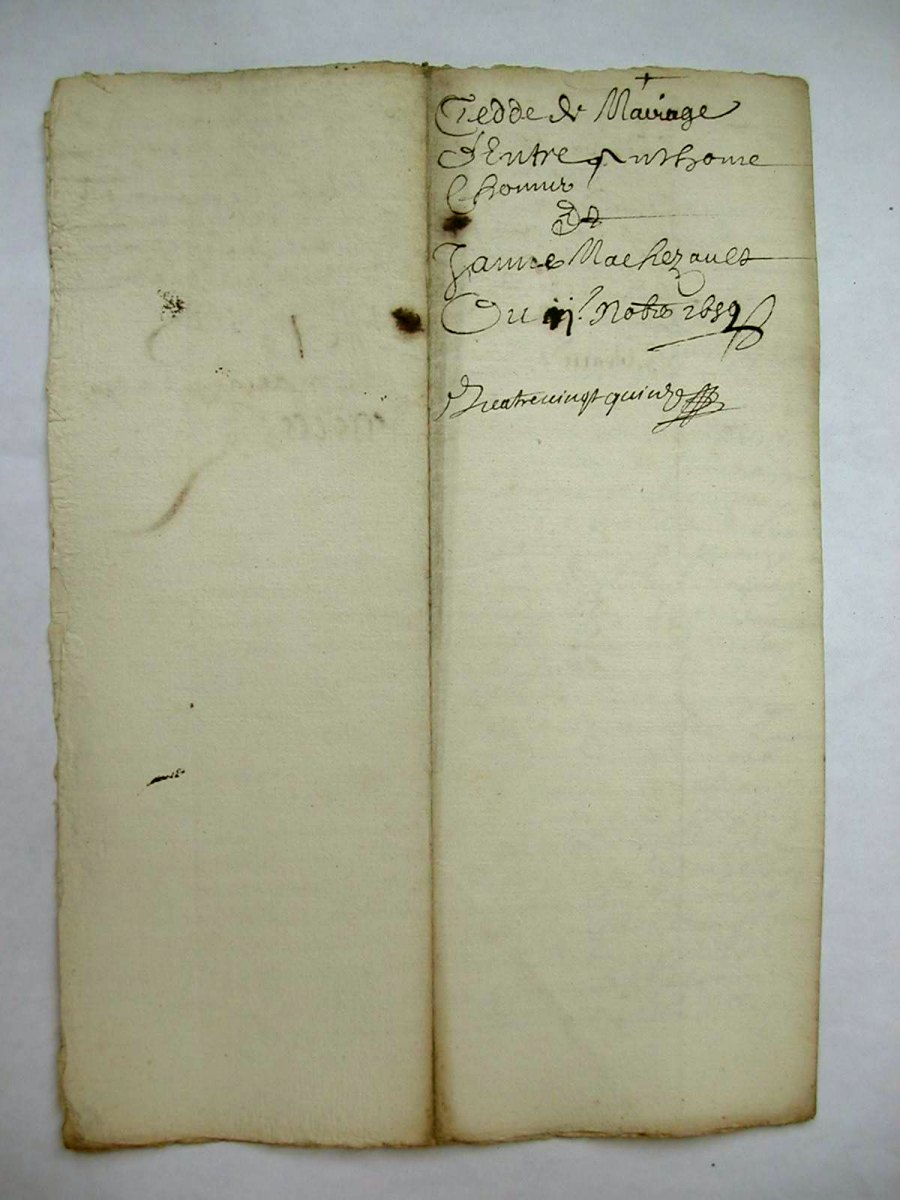 Cedde de Mariage
d'Entre Anthoine
Thomir
Et
Janne Machezault
Du iij.e Nobre 1659
Quatrevingt quinze